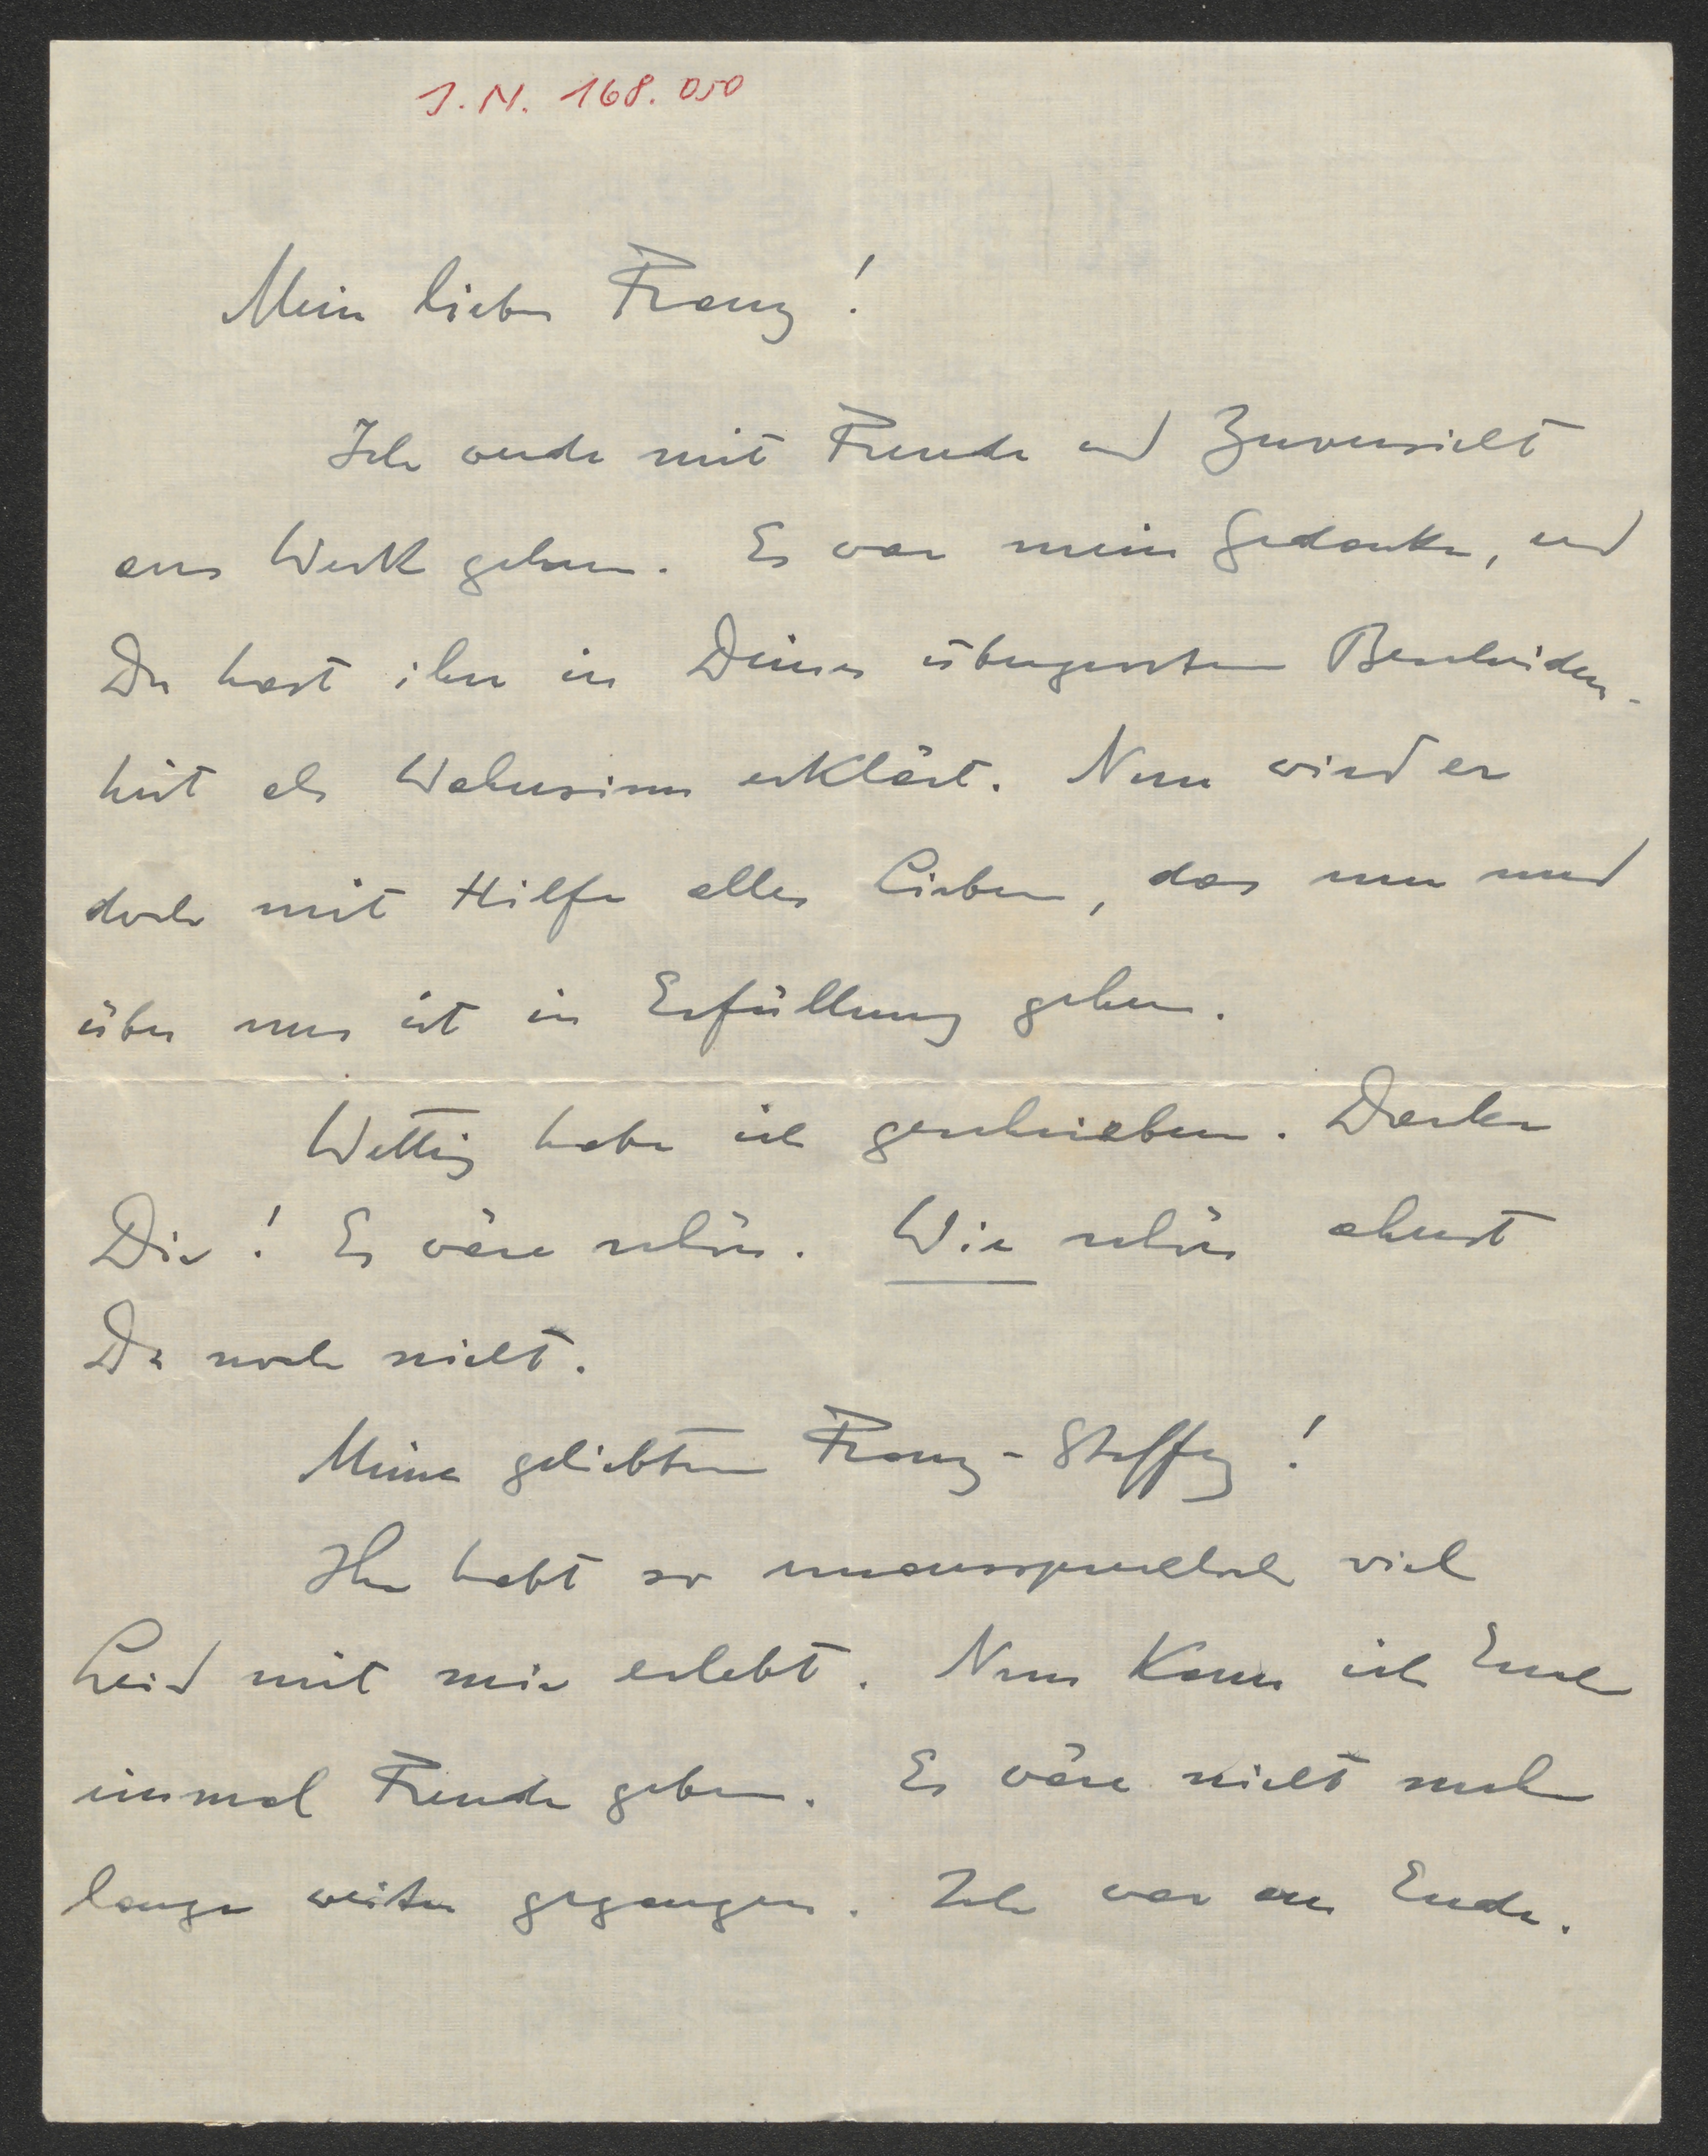 J.N. 168.050
Mein lieber Franz!
Ich werde mit Freude und Zuversicht
ans Werk gehen. Es war mein Gedanke, und
Du hast ihn in Deiner Bescheiden-
heit als Wahnsinn erklärt. Nun wird er
doch mit Hilfe alles Lieben, das um und
über uns ist in Erfüllung gehen.
habe ich geschrieben. Danke
Dir! Es wäre schön. Wie schön ahnst
Du noch nicht.
Meine geliebten Franz-Steffy!
Ihr habt so unaussprechlich viel
Leid mit mir erlebt. Nun kann ich Euch
einmal Freude geben. Es wäre nicht mehr
lange weiter gegangen. Ich war am Ende.